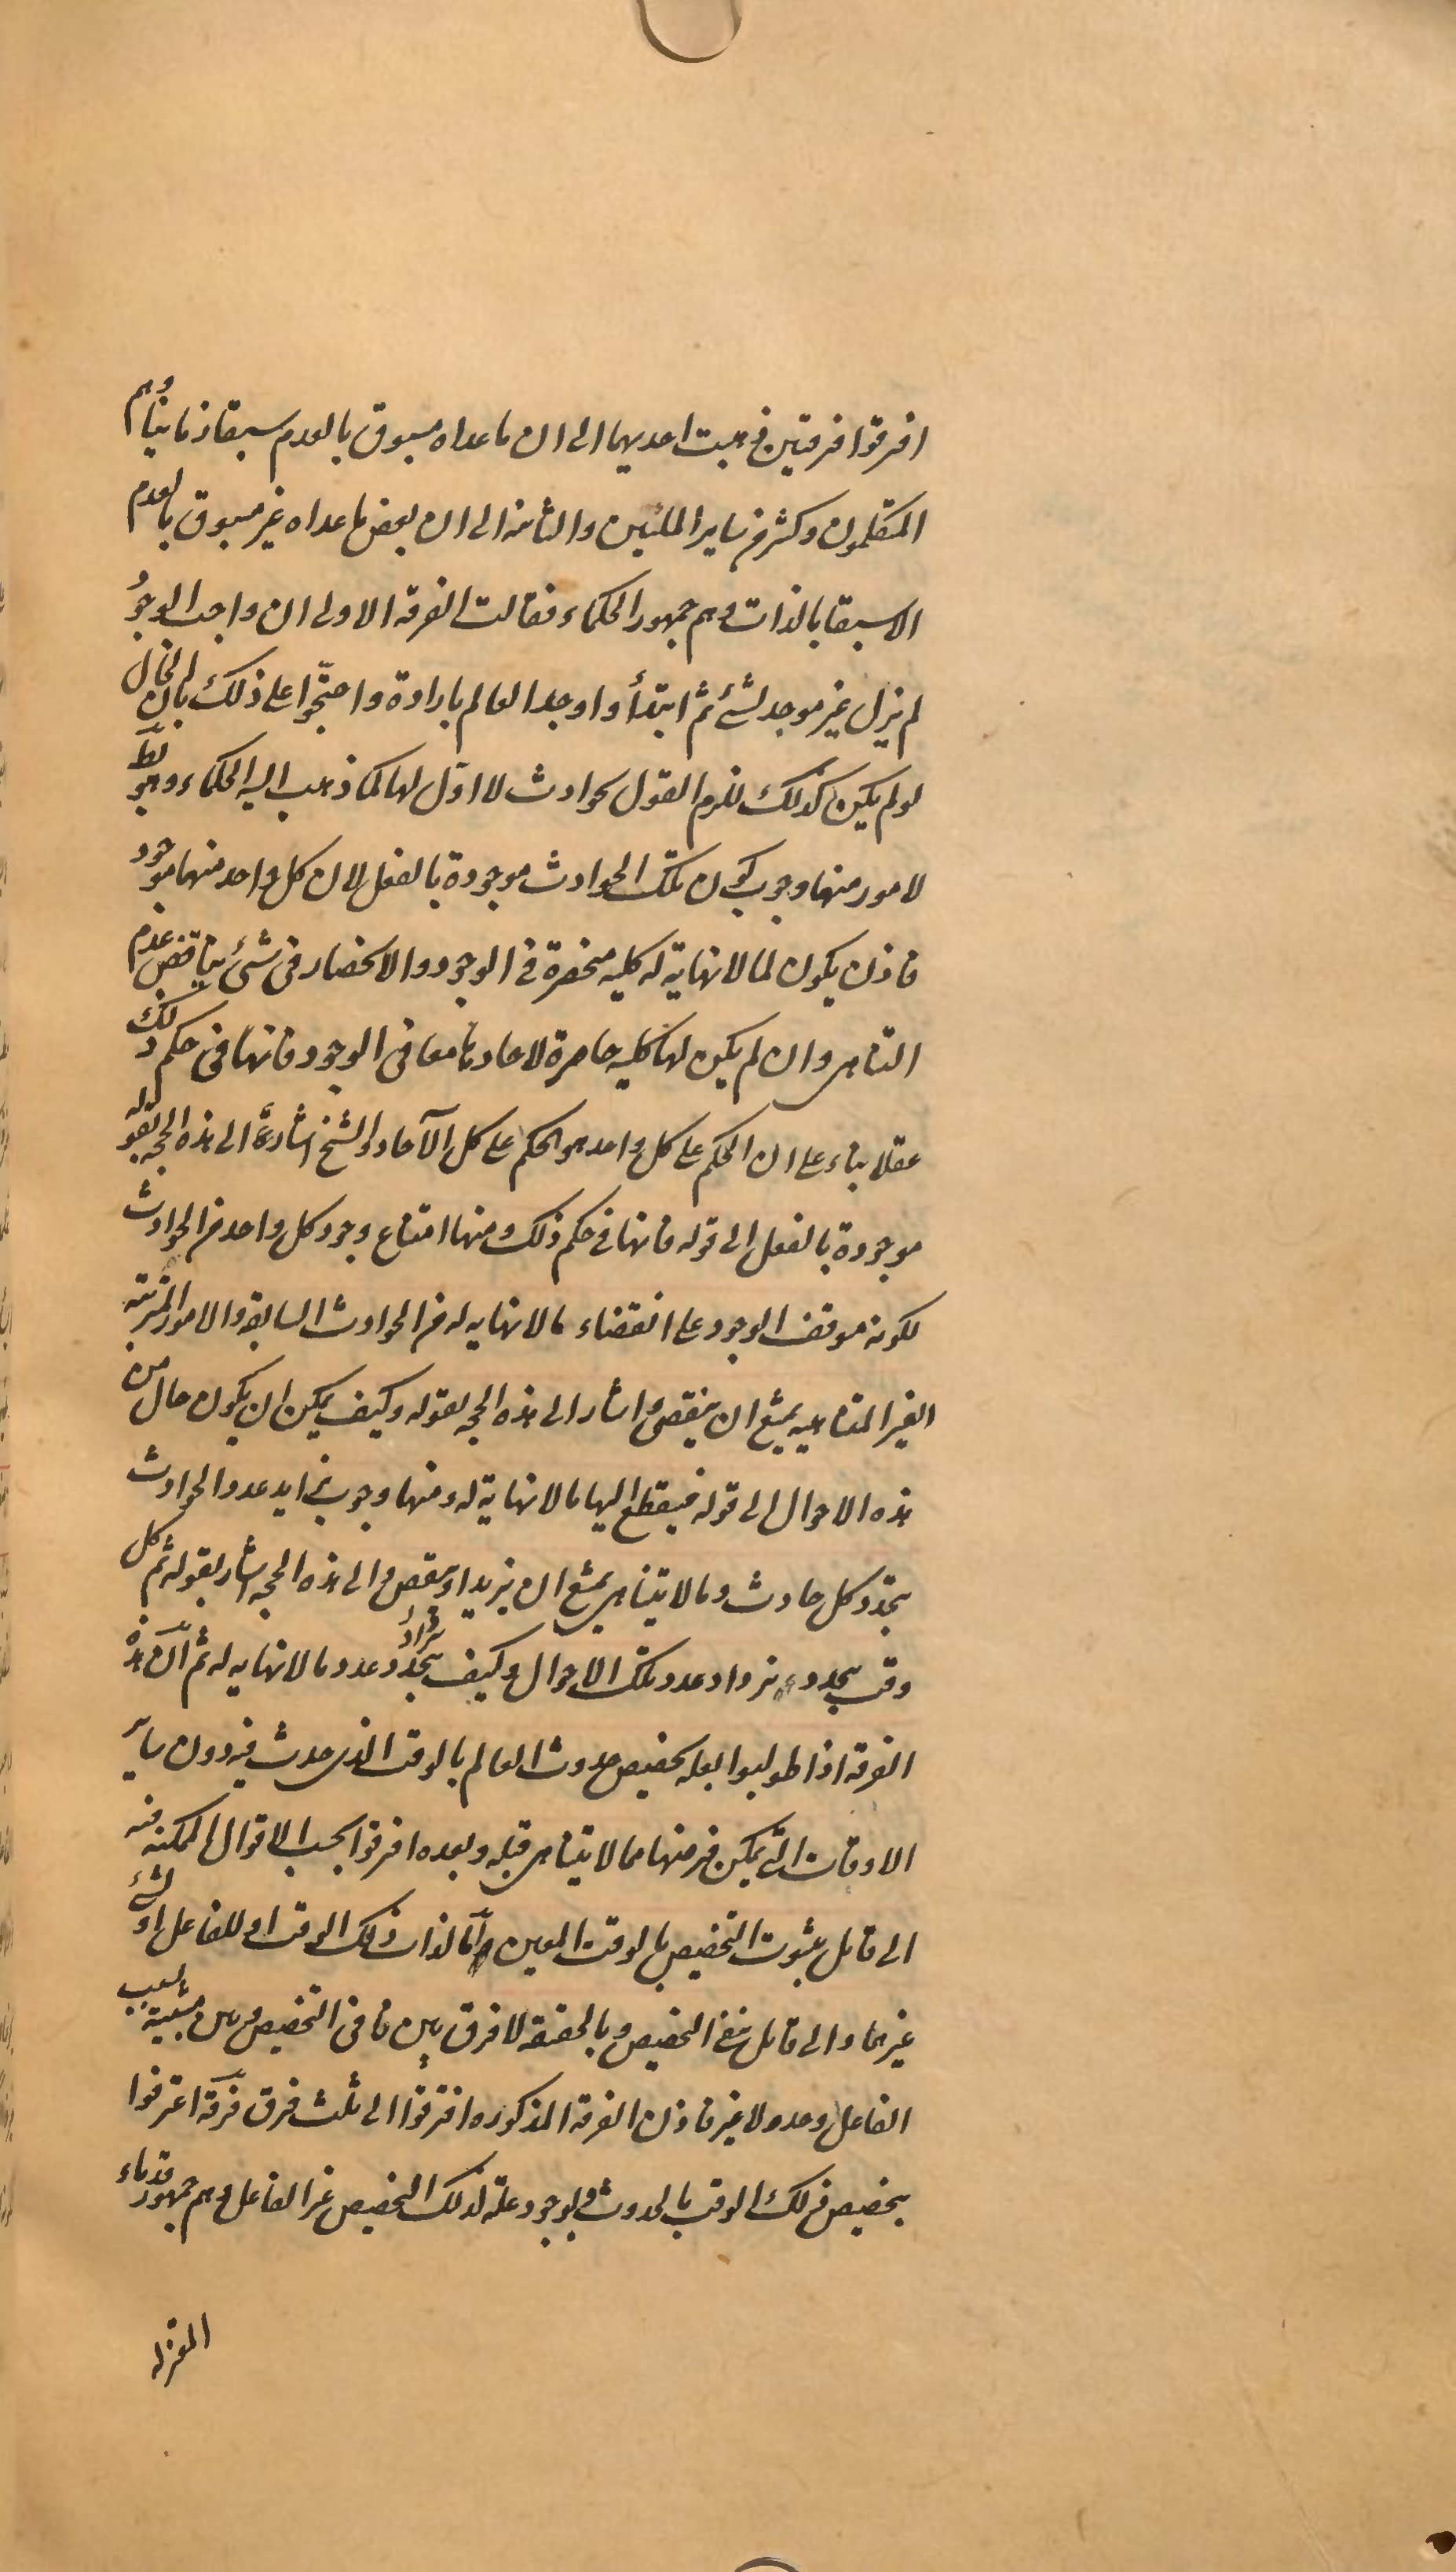 افترقوا فرقتين فذهبت احديهما الى ان ما عداه مسبوق بالعدم سبقا زمانيا وهم
المتكلمون وكثير من ساير الملئين والثانية الى ان بعض ما عداه غير مسبوق بالعدم
الا سبقا بالذات وهم جمهور الحكماء فقالت الفرقة الاولى ان واجب الوجود
لم يزل غير موجد لشئ ثم ابتدأ و اوجد العالم بارادة واحتجّوا على ذلك بان الحال
لو لم يكن كذلك للزم القول بحوادث لا اوّل لها كما ذهب اليه الحكماء وهو بط
لامور منها وجوب كون تلك الحوادث موجودة بالفعل لان كل واحد منها موجود
فاذن يكون لما لا نهاية له كلية منحصرة فى الوجود والانحصار فى شئ يناقض عدم
التناهى وان لم يكن لها كلية حاصرة لاحادها معا فى الوجود فانها فى حكم ذلك
عقلا بناء على ان الحكم على كل واحد هو الحكم على كل الآحاد والشيخ اشار الى هذه الحجة بقوله
موجودة بالفعل الى قوله فانها فى حكم ذلك ومنها امتناع وجود كل واحد من الحوادث
لكونه موقف الوجود على انقضاء ما لا نهاية له من الحوادث السابقة والامور المترتبة
الغير المتناهية يمتنع ان ينقضى واشار الى هذه الحجة بقوله وكيف يمكن ان يكون حال من
هذه الاحوال الى قوله فينقطع اليها ما لا نهاية له ومنها وجوب تزايد عدد الحوادث
بتجدّد كل حادث وما لا يتناهى يمتنع ان يزيد او ينقص والى هذه الحجة اشار بقوله ثم كل
وقت يتجدد يزداد عدد تلك الاحوال وكيف يتجدّد يزداد عدد ما لا نهاية له ثم انّ هذه
الفرقة اذا طولبوا بعلة تخصيص حدوث العالم بالوقت الذى حدث فيه دون ساير
الاوقات التى يمكن فرضها مما لا يتناهى قبله وبعده افترقوا بحسب الاقوال الممكنة فيه
الى قائل بثبوت التخصيص بالوقت المعين امّا لذات ذلك الوقت او للفاعل او لشئ
غيرهما والى قائل بنفى التخصيص وبالحقيقة لا فرق بين نافى التخصيص وبين مثبتيه بسبب
الفاعل وحده لا غير فاذن الفرقة المذكوره افترقوا الى ثلث فرق فرقة اعترفوا
بتخصيص ذلك الوقت بالحدوث ولوجود علة لذلك التخصيص غير الفاعل وهم جمهور قدماء
المعتزلة